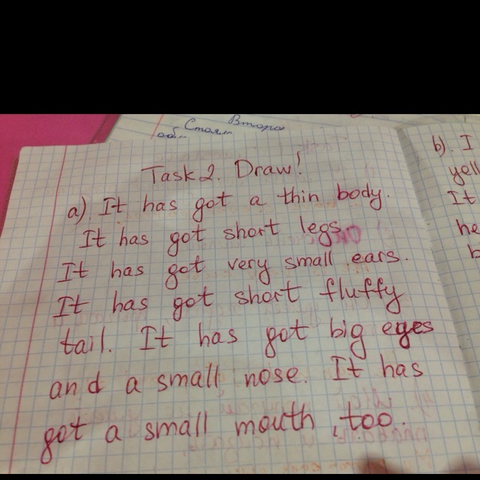 Task 2. Draw!
a) It has got a thin body.
It has got short legs.
It has got very small ears.
It has got short fluffy
tail. It has got big eyes
and a small nose. It has
got a small mouth, too.
b) I
yell
It
he
b